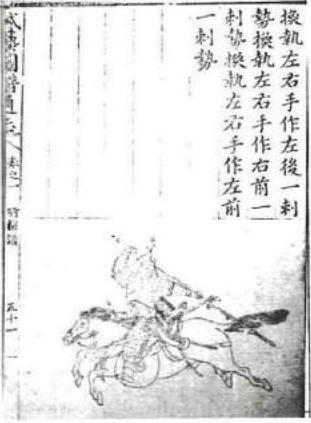 換執左右手作左後一刺
勢換執左右手作右前一
刺勢換執左右手作左前
一刺勢
武藝圖譜通志
卷之一
五十一